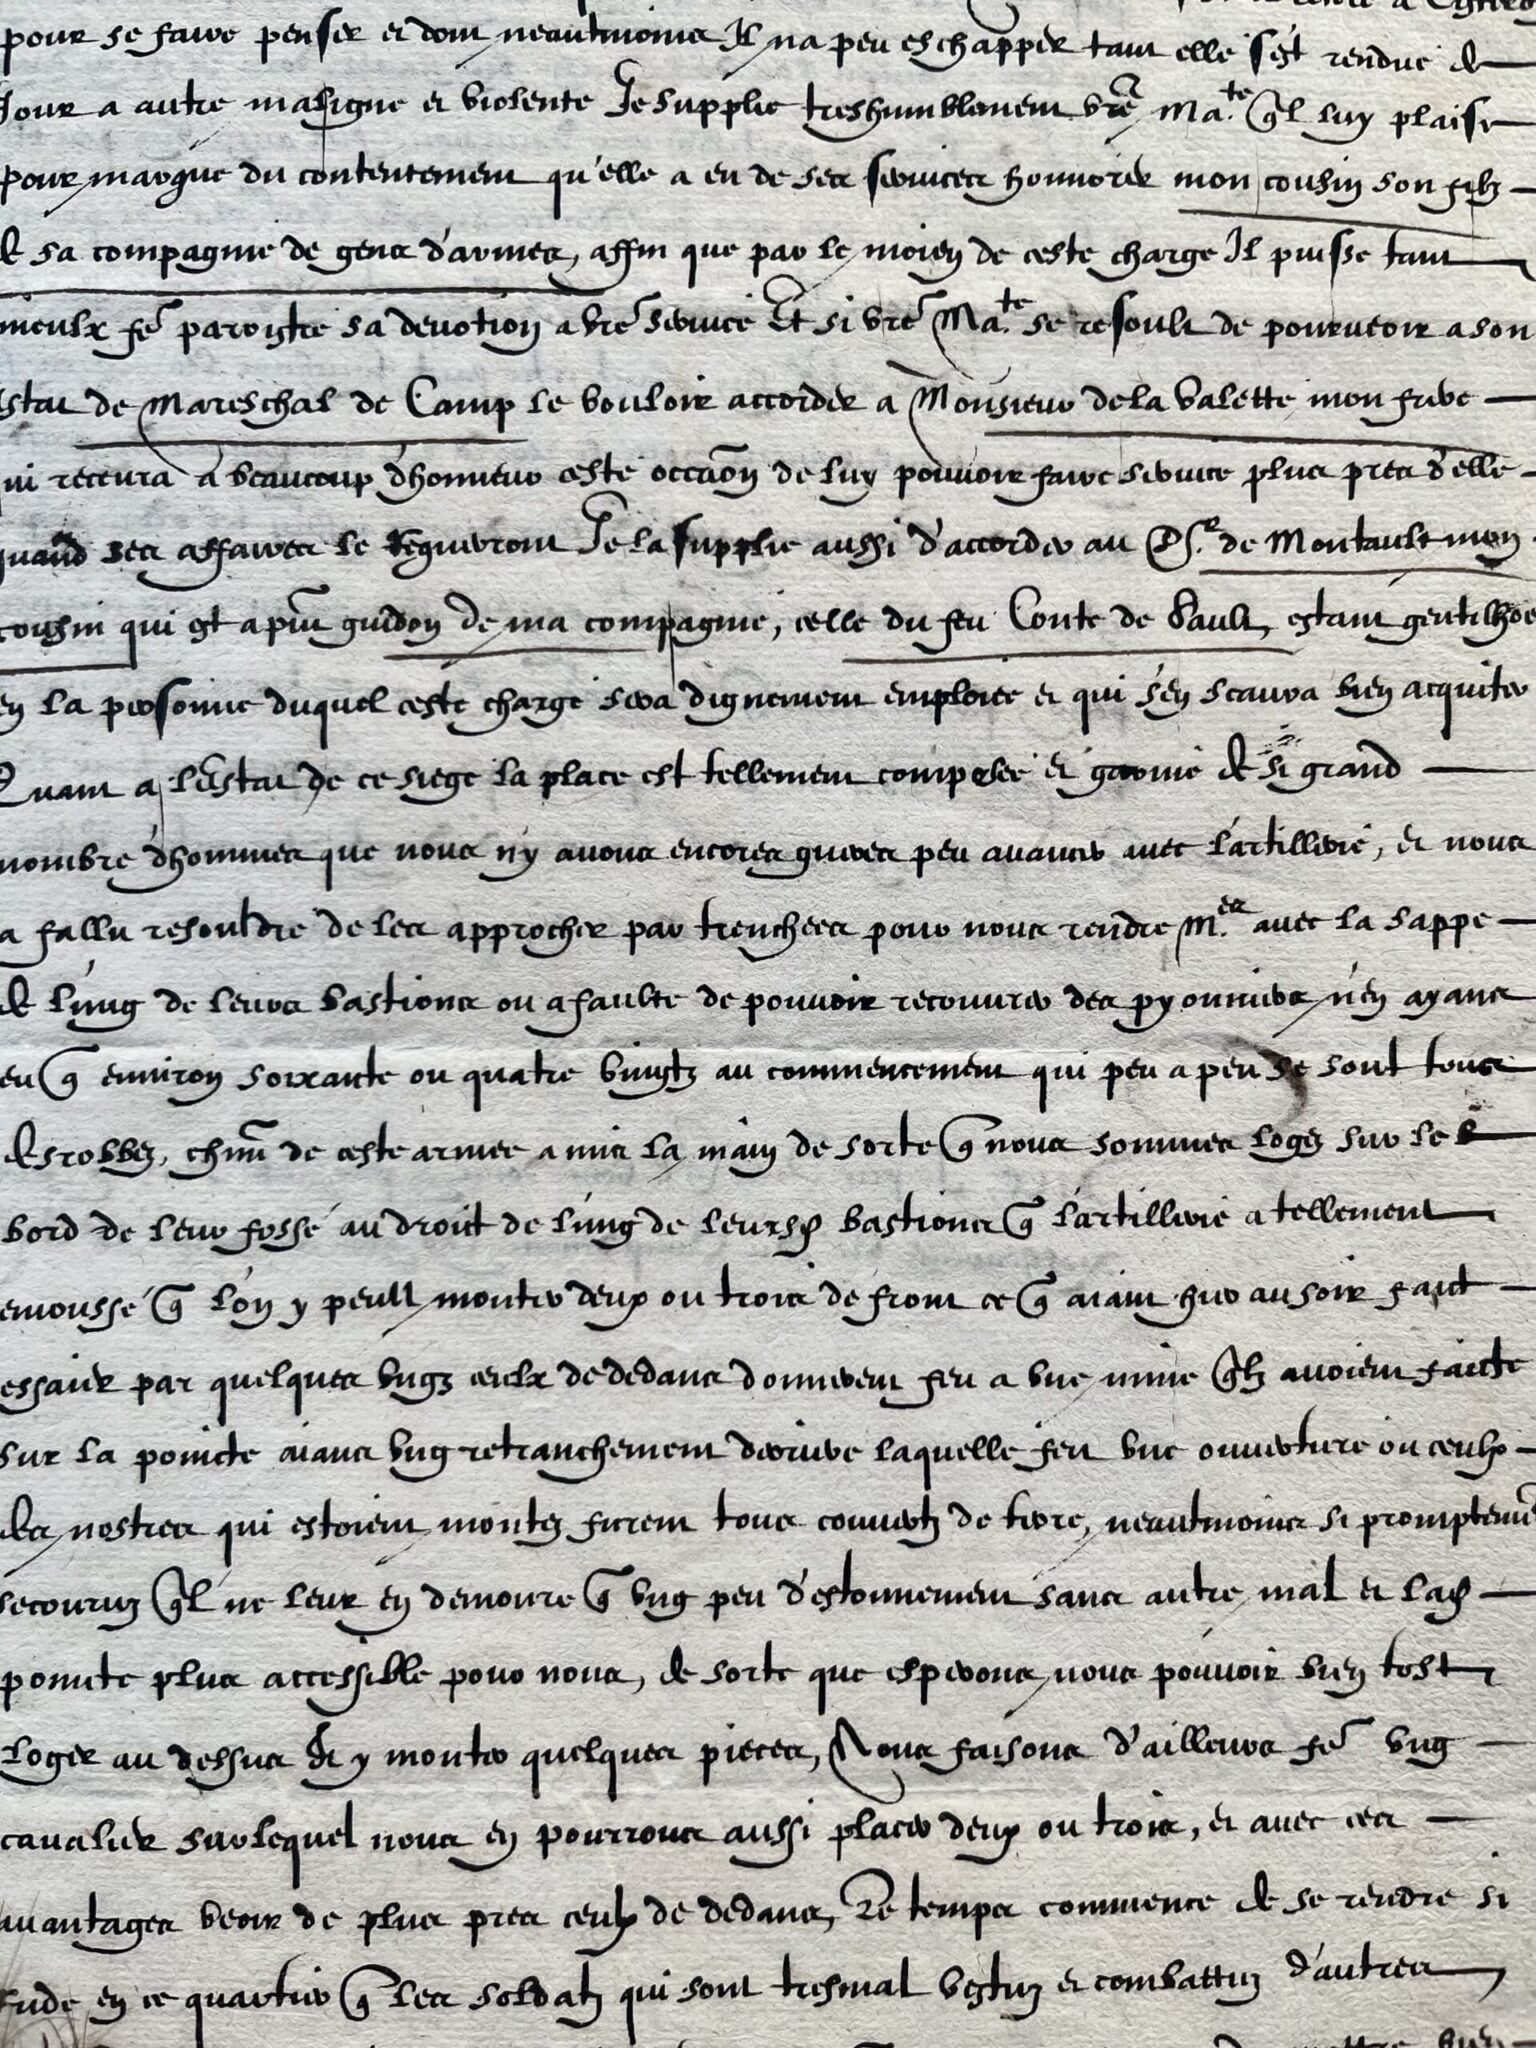 pour se faire penser et dont neantmoins Il na peu eschapper tant elle s'est rendue de
Jour a autre maligne et violente Je supplie treshumblement vre Ma.te ql luy plaise
pour marque du contentement qu'elle a eu de ses services honnorer mon cousin son filz
de sa compagnie de gens d'armes, affin que par le moien de ceste charge Il puisse tant
mieulx fe paroistre sa devotion a vre service Et si vre Ma.te se resoult de pourveoir a son
estat de Mareschal de Camp le vouloir accorder a Monsieur de la Valette mon frere
qui recevra a beaucoup d'honneur ceste occaon de luy pouvoir faire service plus pres d'elle
quand ses affaires le requerront Je la supplie aussi d'accorder au Sr. de Montault mon
cousin qui est a pnt guidon de ma compagnie, celle du feu Conte de Sault, estant gentilhoe
en la personne duquel ceste charge sera dignement emploiee et qui s'en scaura bien acquiter
Quant a l'estat de ce siege la place est tellement composee et garnie de si grand
nombre d'hommes que nous n'y avons encores gueres peu avancer avec l'artillerie, et nous
a fallu resouldre de les approcher par trenchees pour nous rendre M.es avec la sappe
de l'ung de leurs bastions ou a faulte de pouvoir recouvrer des pyonniers n'en ayans
eu q environ soixante ou quatre vingtz au commencement qui peu a peu se sont tous
desrobbez, chnn de ceste armee a mis la main de sorte q nous sommes logez sur le
bord de leur fossé au droict de l'ung de leursd bastions q l'artillerie a tellement
emoussé q l'on y peult monter deux ou trois de front ce q aiant hier au soir faict
essaier par quelques ungz ceulx de dedans donnerent feu a une mine qlz avoient faicte
sur la poincte aians ung retranchement derriere laquelle feit une ouverture ou ceulx
des nostres qui estoient montez furent tous couvertz de terre, neantmoins si promptement
secouruz ql ne leur en demoure q ung peu d'estonnement sans autre mal et lad
poincte plus accessible pour nous, de sorte que esperons nous pouvoir bien tost
loger au dessus et y monter quelques pieces, Nous faisons d'ailleurs fe ung
cavalier sur lequel nous en pourrons aussi placer deux ou trois, et avec ces
avantages veoir de plus pres ceulx de dedans, Le temps commence de se rendre si
rude en ce quartier q les soldatz qui sont tresmal vestuz et combattuz d'autres